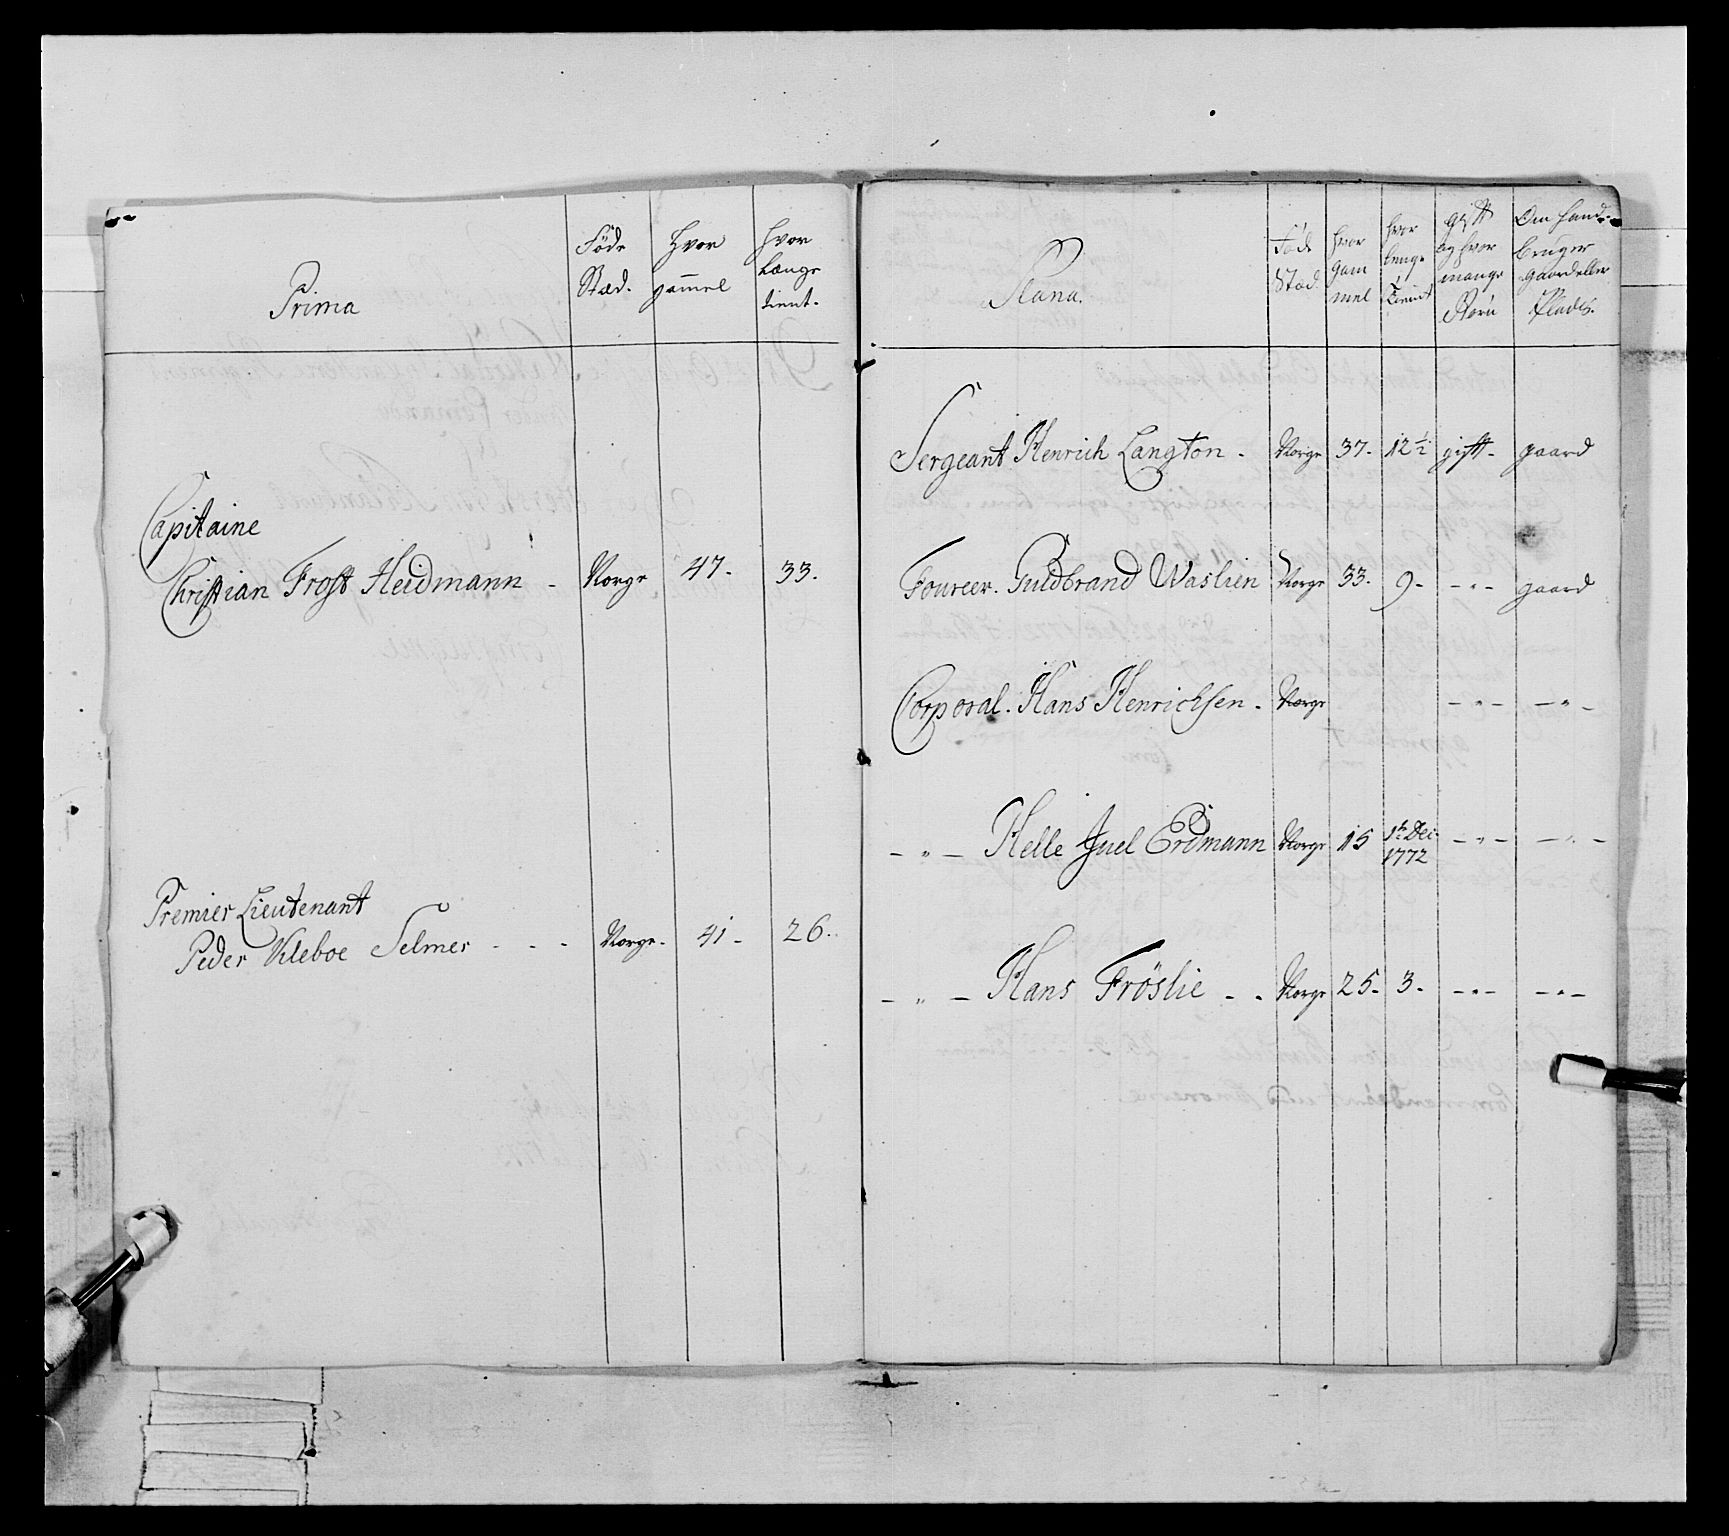 Prima
Føde Stæd.
Hvor gam̄el
hvor længe tient.
Capitaine
Christian Frost Heidmann - Norge 47. 33.
Premier Lieutenant
Peder Kleboe Selmer - - - Norge. 41. 26.
Plana.
Føde Stæd
hvor gam mel
hvor lenge tient
gift og hvor mange Børn
Om hand bruger gaard eller Plads.
Sergeant Henrich Langton. Norge 37. 12½ gift. gaard
Foureer. Guldbrand Waslien Norge 33. 9. -"- gaard
Corporal. Hans Henrichsen. Norge -"- -"-
-"- Helle Juel Erdmann Norge 15 1te Dec. 1772 -"- -"-
-"- Hans Fröslie - . Norge 25. 3. -"- -"-